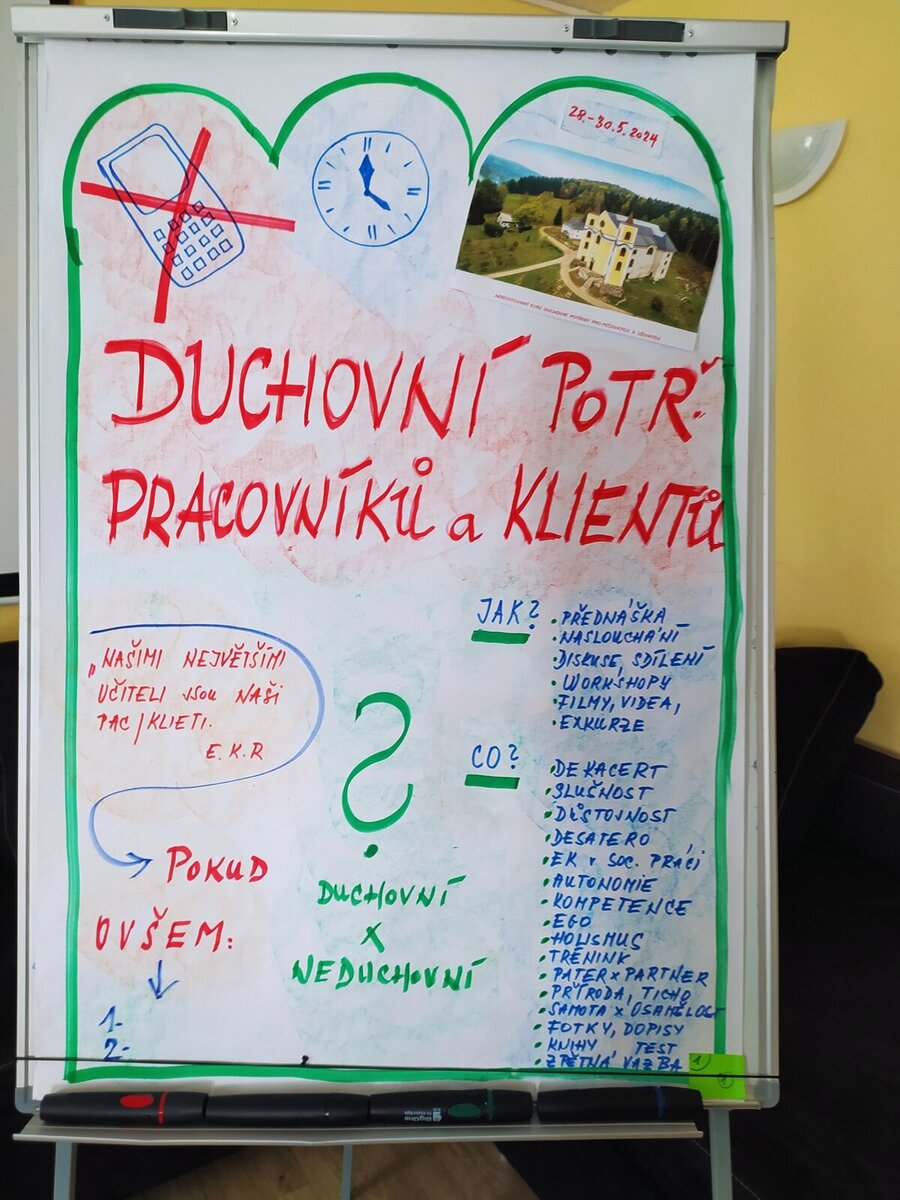 28.-30.5.2024
AKREDITOVANÝ KURZ DUCHOVNÍ POTŘEBY PRO PEČOVATELE A UŽIVATELE
DUCHOVNÍ POTŘ.
PRACOVNÍKŮ a KLIENTŮ
„NAŠIMI NEJVĚTŠÍMI
UČITELI JSOU NAŠI
PAC/KLIETI.
E.K.R
POKUD
OVŠEM:
1.
2.
?
DUCHOVNÍ
X
NEDUCHOVNÍ
JAK?
•PŘEDNÁŠKA
•NASLOUCHÁNÍ
•DISKUSE, SDÍLENÍ
•WORKSHOPY
•FILMY, VIDEA,
•EXKURZE
CO?
•DEKACERT
•SLUŠNOST
•DŮSTOJNOST
•DESATERO
•EK v SOC. PRÁCI
•AUTONOMIE
•KOMPETENCE
•EGO
•HOLISMUS
•TRÉNINK
•PATER x PARTNER
•PŘÍRODA, TICHO
•SAMOTA x OSAMĚLOST
•FOTKY, DOPISY
•KNIHY TEST
•ZPĚTNÁ VAZBA
1
BigOne